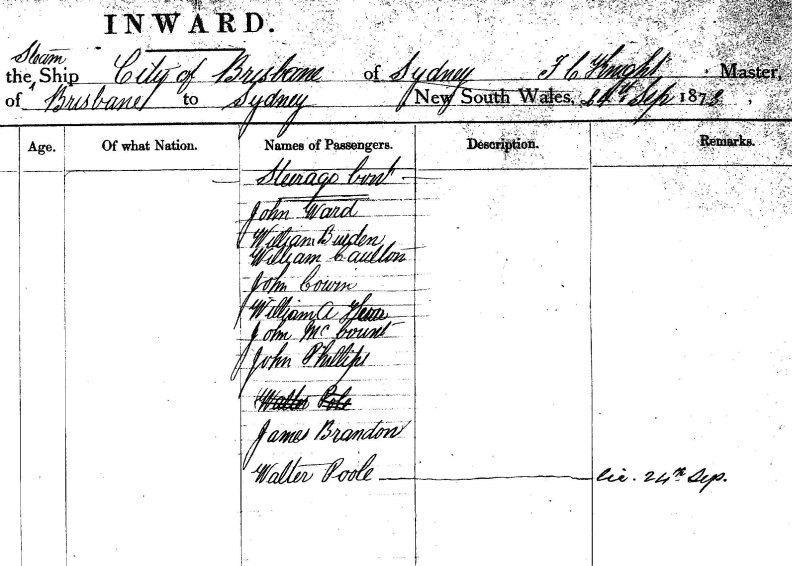 INWARD.
Steam
the Ship City of Brisbane of Sydney T C Knight Master,
of Brisbane to Sydney New South Wales, 24th Sep 1873,
Age. Of what Nation. Names of Passengers. Description. Remarks.
Steerage Cont
John Ward
William Burden
William Caulton
John Cowin
William A
John Mc Count
John Phillips
Walter Pole
James Brandon
Walter Poole 24th Sep.